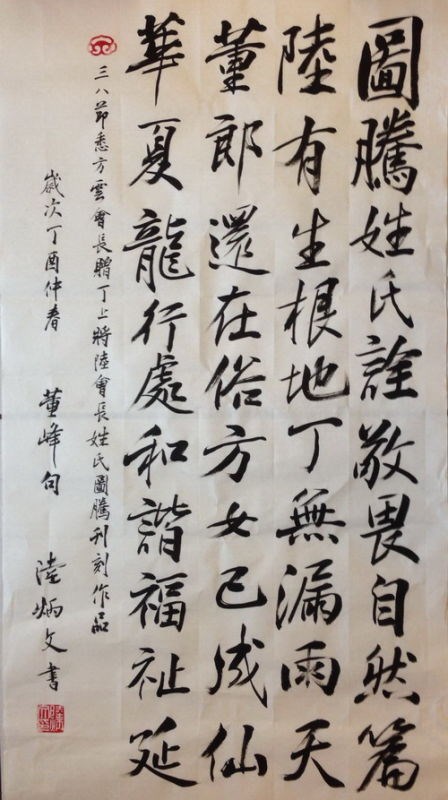 圖騰姓氏詮敬畏自然篇
陸有生根地丁無漏雨天
董郎還在俗方女已成仙
華夏龍行處和諧福祉延
三八節悉方雲會長贈丁上將陸會長姓氏圖騰刊刻作品
歲次丁酉仲春 董峰句 陸炳文書